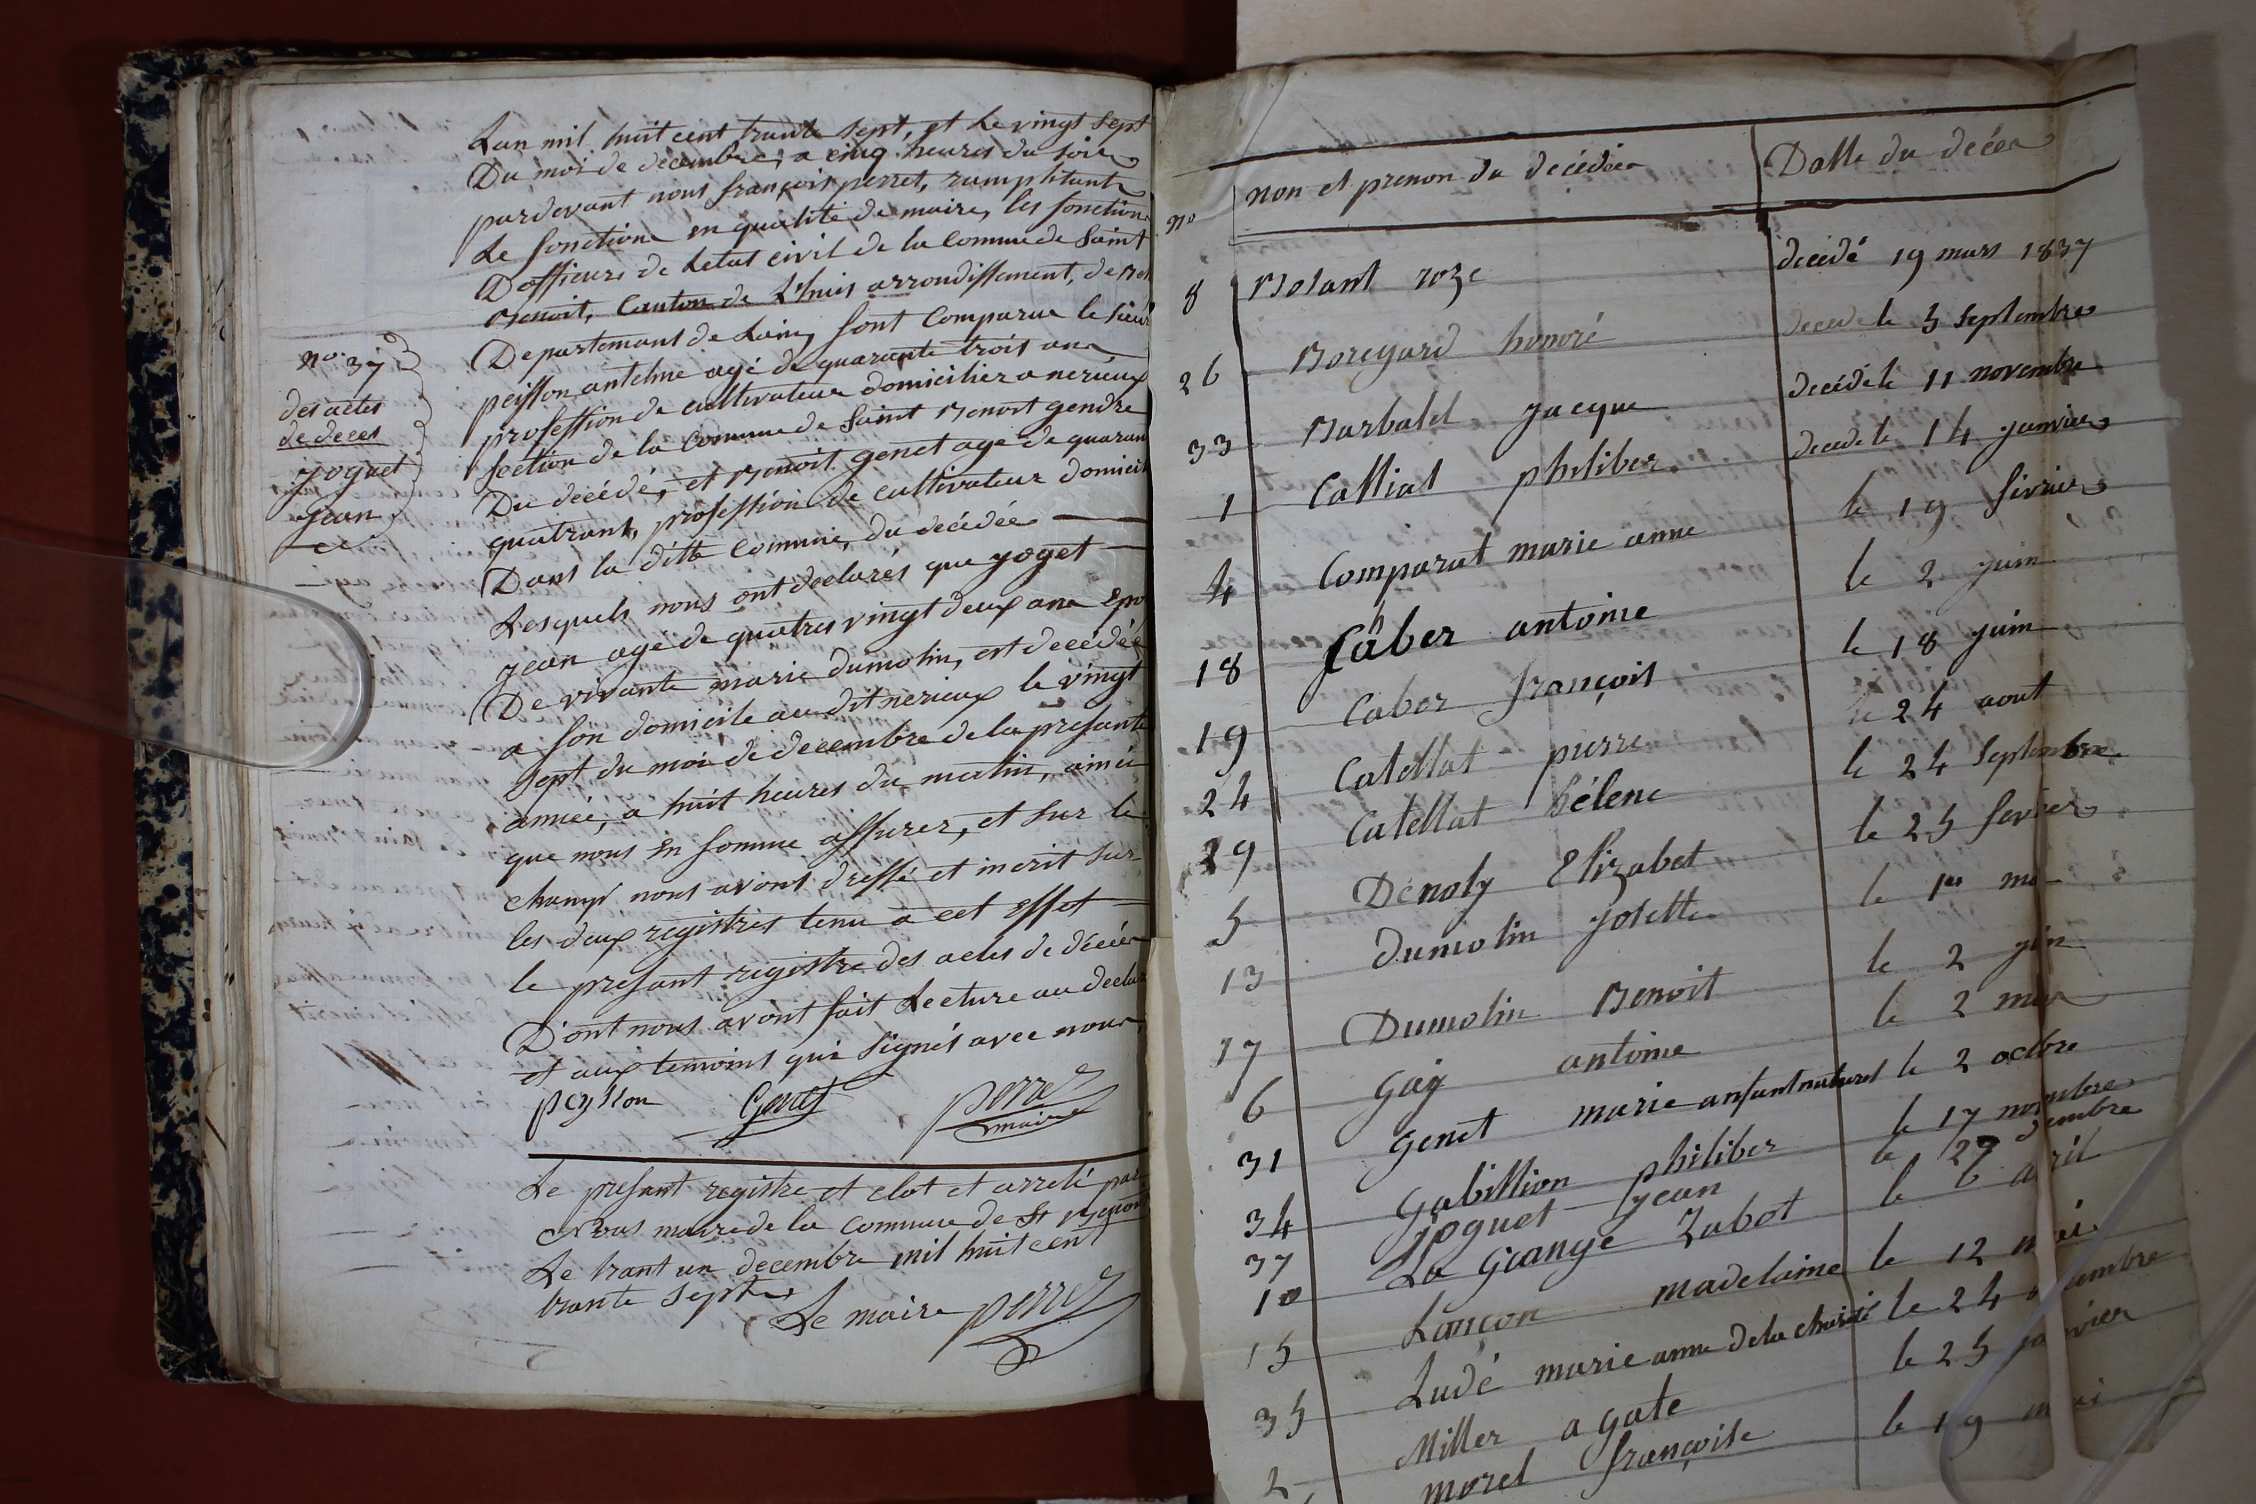 Lan mil huit cent trante sept, et le vingt sept
Du moi de decembre, a cinq heures du soir
pardevant nous françois perret, ramplitant
Le fonctions en qualité de maire, les fonction
Dofficiers de Letat civil de la Commune de Saint
Benoit, Canton de L'huis arrondissement, de Bel
Departemant de Lain, sont Comparue le sieur
peisson antelme agé de quarante trois ans
profession de cultivateur domicilier a nerieux
section de la Commune de Saint Benoit gendre
Du decédé, et Benoit genet age de quaran
quatrant, profession de cultivateur domicil
Dans la ditte Commune, du decédée
Lesquels nous ont declarés que yoget
jean agé de quatres vingt deux ans Epo
De vivante marie dumolin, est decédée
a son domicile audit nerieux le vingt
sept du moi de decembre de la presante
année, a huit heures du matin, ainci
que nous En somme assurer, et sur le
champ nous avons dressé et inscrit sur
les deux registres tenu a cet Effet
le presant registre des actes de décés
D'ont nous avont fait Lecture au declar
et aux temoins qui signés avec nous
peysson Genet perret
maire
Le presant registre et clot et arreté par
Nous maire de la Commune de St Benoit
Le trant un decembre mil huit cent
trante sept
Le maire perret
no. 37
des actes
de deces
joguet
jean
no non et prenon du decédées Datte du decés
8 Bolant roze decédé 19 mars 1837
26 Boregard honoré decede le 5 septembre
33 Barbalet jacque decédé le 11 novembre
1 Calliat philiber decede le 14 janvier
4 Comparat marie anne le 19 fevrier
18 Caber antoine le 2 juin
19 Caber françois le 18 juin
24 Catellat pierre le 24 aout
29 Catellat hélene le 24 septembre
5 Denoly Elizabet le 25 fevrier
13 Dumolin josette le 1er
17 Dumolin Benoit le 2 juin
6 Gay antoine le 2 mar
31 Genet marie anfant naturel le 2 octbre
34 Gabillion philiber le 17 novembre
37 joguet jean le 27 decembre
10 La Grange Zabet le 6 avril
15 Lançon madelaine le 12 mai
35 Ludé marie anne de la charité le 24 novembre
2 Miller agate le 25 janvier
morel françoise le 19 mai